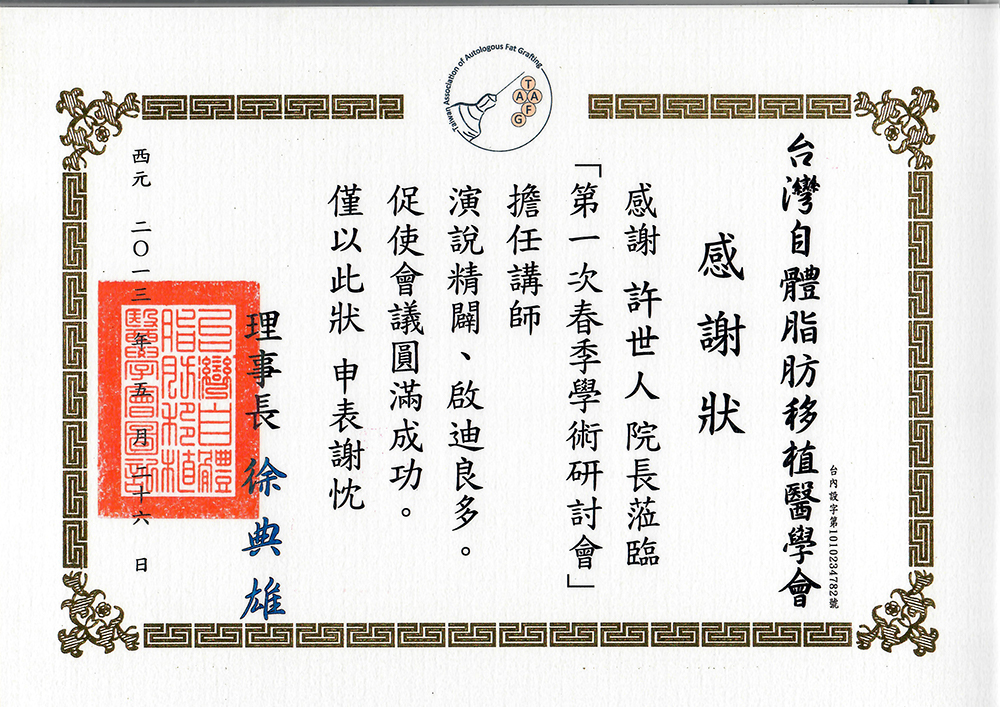 Taiwan Association of Autologous Fat Grafting
T
A A
F
G
台灣自體脂肪移植醫學會
台內設字第1010234782號
感謝狀
感謝 許世人 院長蒞臨
「第一次春季學術研討會」
擔任講師
演說精闢、啟迪良多。
促使會議圓滿成功。
僅以此狀 申表謝忱
理事長 徐典雄
台灣自體
脂肪移植
醫學會圖記
西元 二○一三年五月二十六日